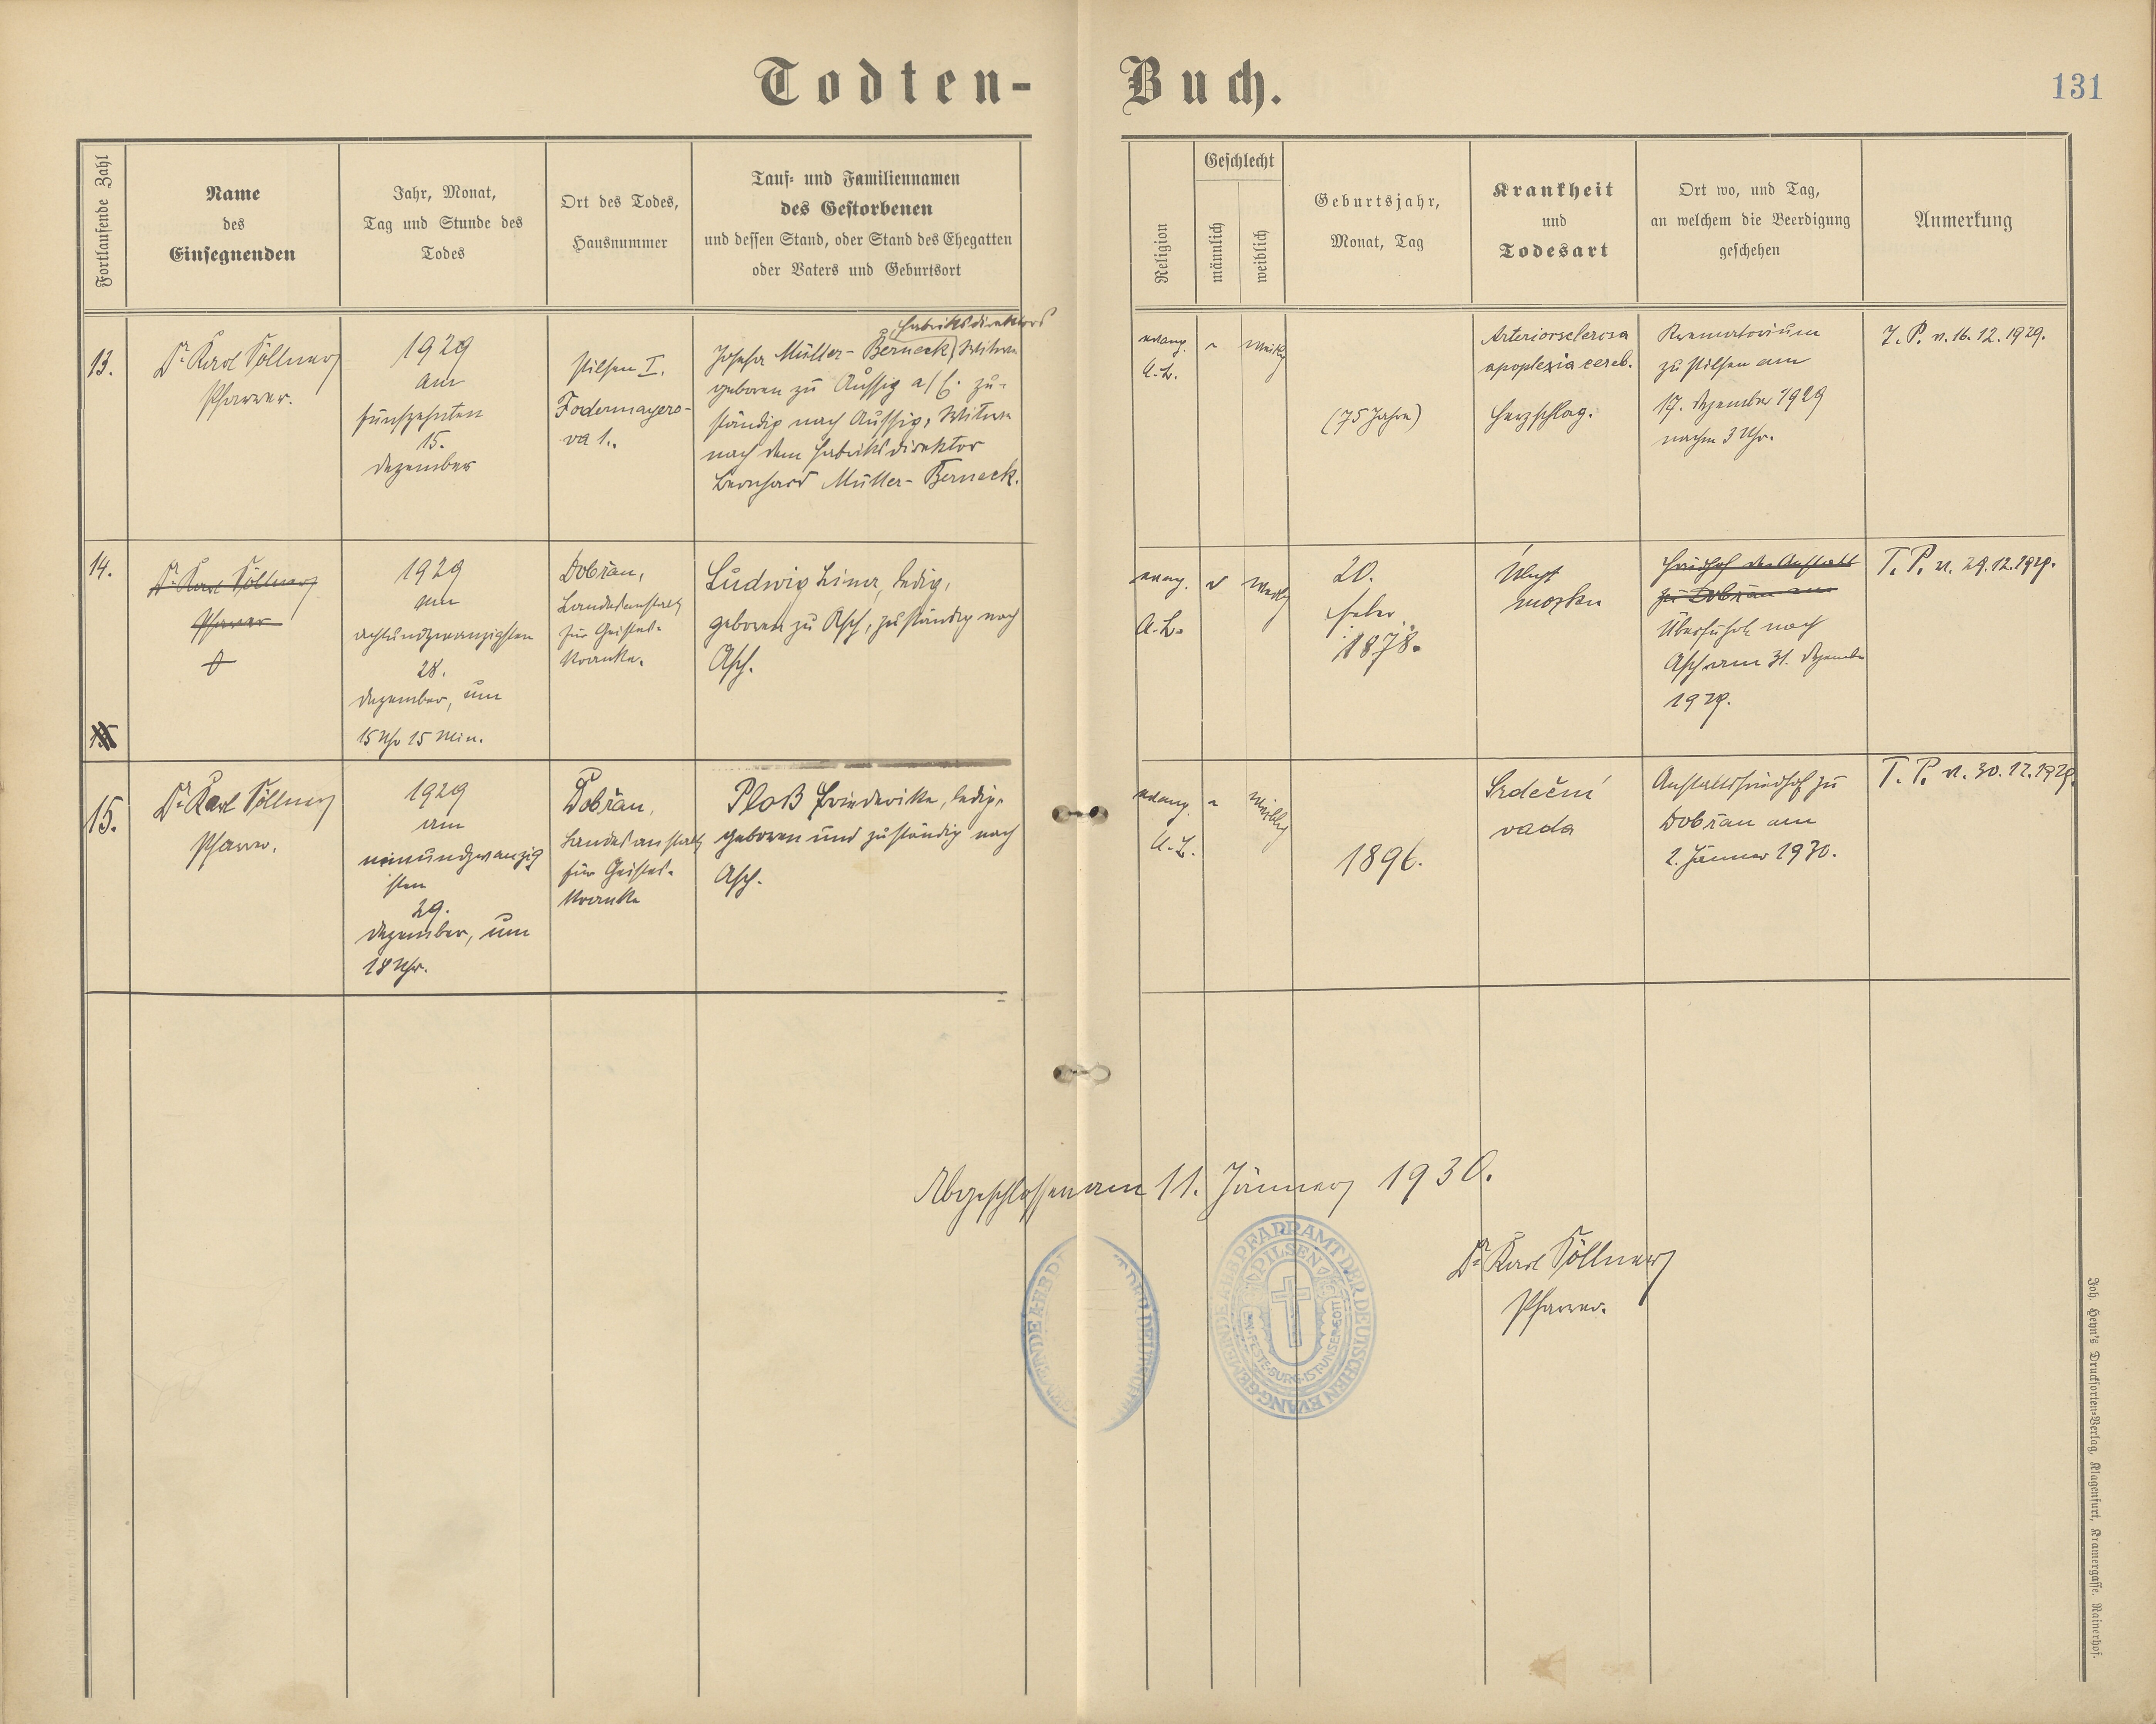 Todten-Buch.
131
Fortlaufende Zahl
Name
des
Einsegnenden
Jahr, Monat,
Tag und Stunde des
Todes
Ort des Todes,
Hausnummer
Tauf- und Familiennamen
des Gestorbenen
und dessen Stand, oder Stand des Ehegatten
oder Vaters und Geburtsort
Religion
Geschlecht
männlich
weiblich
Geburtsjahr,
Monat, Tag
Krankheit
und
Todesart
Ort wo, und Tag,
an welchem die Beerdigung
geschehen
Anmerkung
13.
Dr. Karl Töllner
Pfarrer.
1929
am
fünfzehnten
15.
Dezember
Pilsen I.
Fodermayero-
va 1.
Fabriksdirektors
Josefa Müller-Berneck, Witwe
geboren zu Aussig a/E. zu-
ständig nach Aussig, Witwe
nach dem Fabriksdirektor
Leonhard Müller-Berneck.
evang.
A.B.
(75 Jahre)
Arteriosclerosa
apoplexia cereb.
Herzschlag.
Krematorium
zu Pilsen am
17. Dezember 1929
nachm 3 Uhr.
T. P. v. 16.12.1929.
14.
Dr. Karl Töllner
Pfarrer
1929
am
achtundzwanzigsten
28.
Dezember, um
15 Uhr 15 Min.
Dobřan,
Landesanstalt
für Geistes-
kranke.
Ludwig ledig,
geboren zu Asch, zuständig nach
Asch.
evang.
A.B.
20.
Feber
1878.
mozku
Friedhof der Anstalt
zu Dobřan am
Überführt nach
Asch am 31. Dezember
1929.
T. P. v. 29.12.1929.
15.
Dr. Karl Töllner
Pfarrer.
1929
am
neunundzwanzig
sten
29.
Dezember, um
18 Uhr.
Dobřan,
Landesanstalt
für Geistes-
kranke
Ploß Friederike, ledig,
geboren und zuständig nach
Asch.
evang.
A.B.
weiblich
1896.
Srdeční
vada
Anstaltsfriedhof zu
Dobřan am
2. Jänner 1930.
T. P. v. 30.12.1929.
Abgeschlossen am 11. Jänner 1930.
Dr. Karl Töllner
Pfarrer.
PFARRAMT DER DEUTSCHEN EVANG. GEMEINDE A.B.
PILSEN
EIN-FESTE-BURG-IST-UNSER-GOTT
Joh. Heyn's Drucksorten-Verlag, Klagenfurt, Kramergasse. Rainerhof.